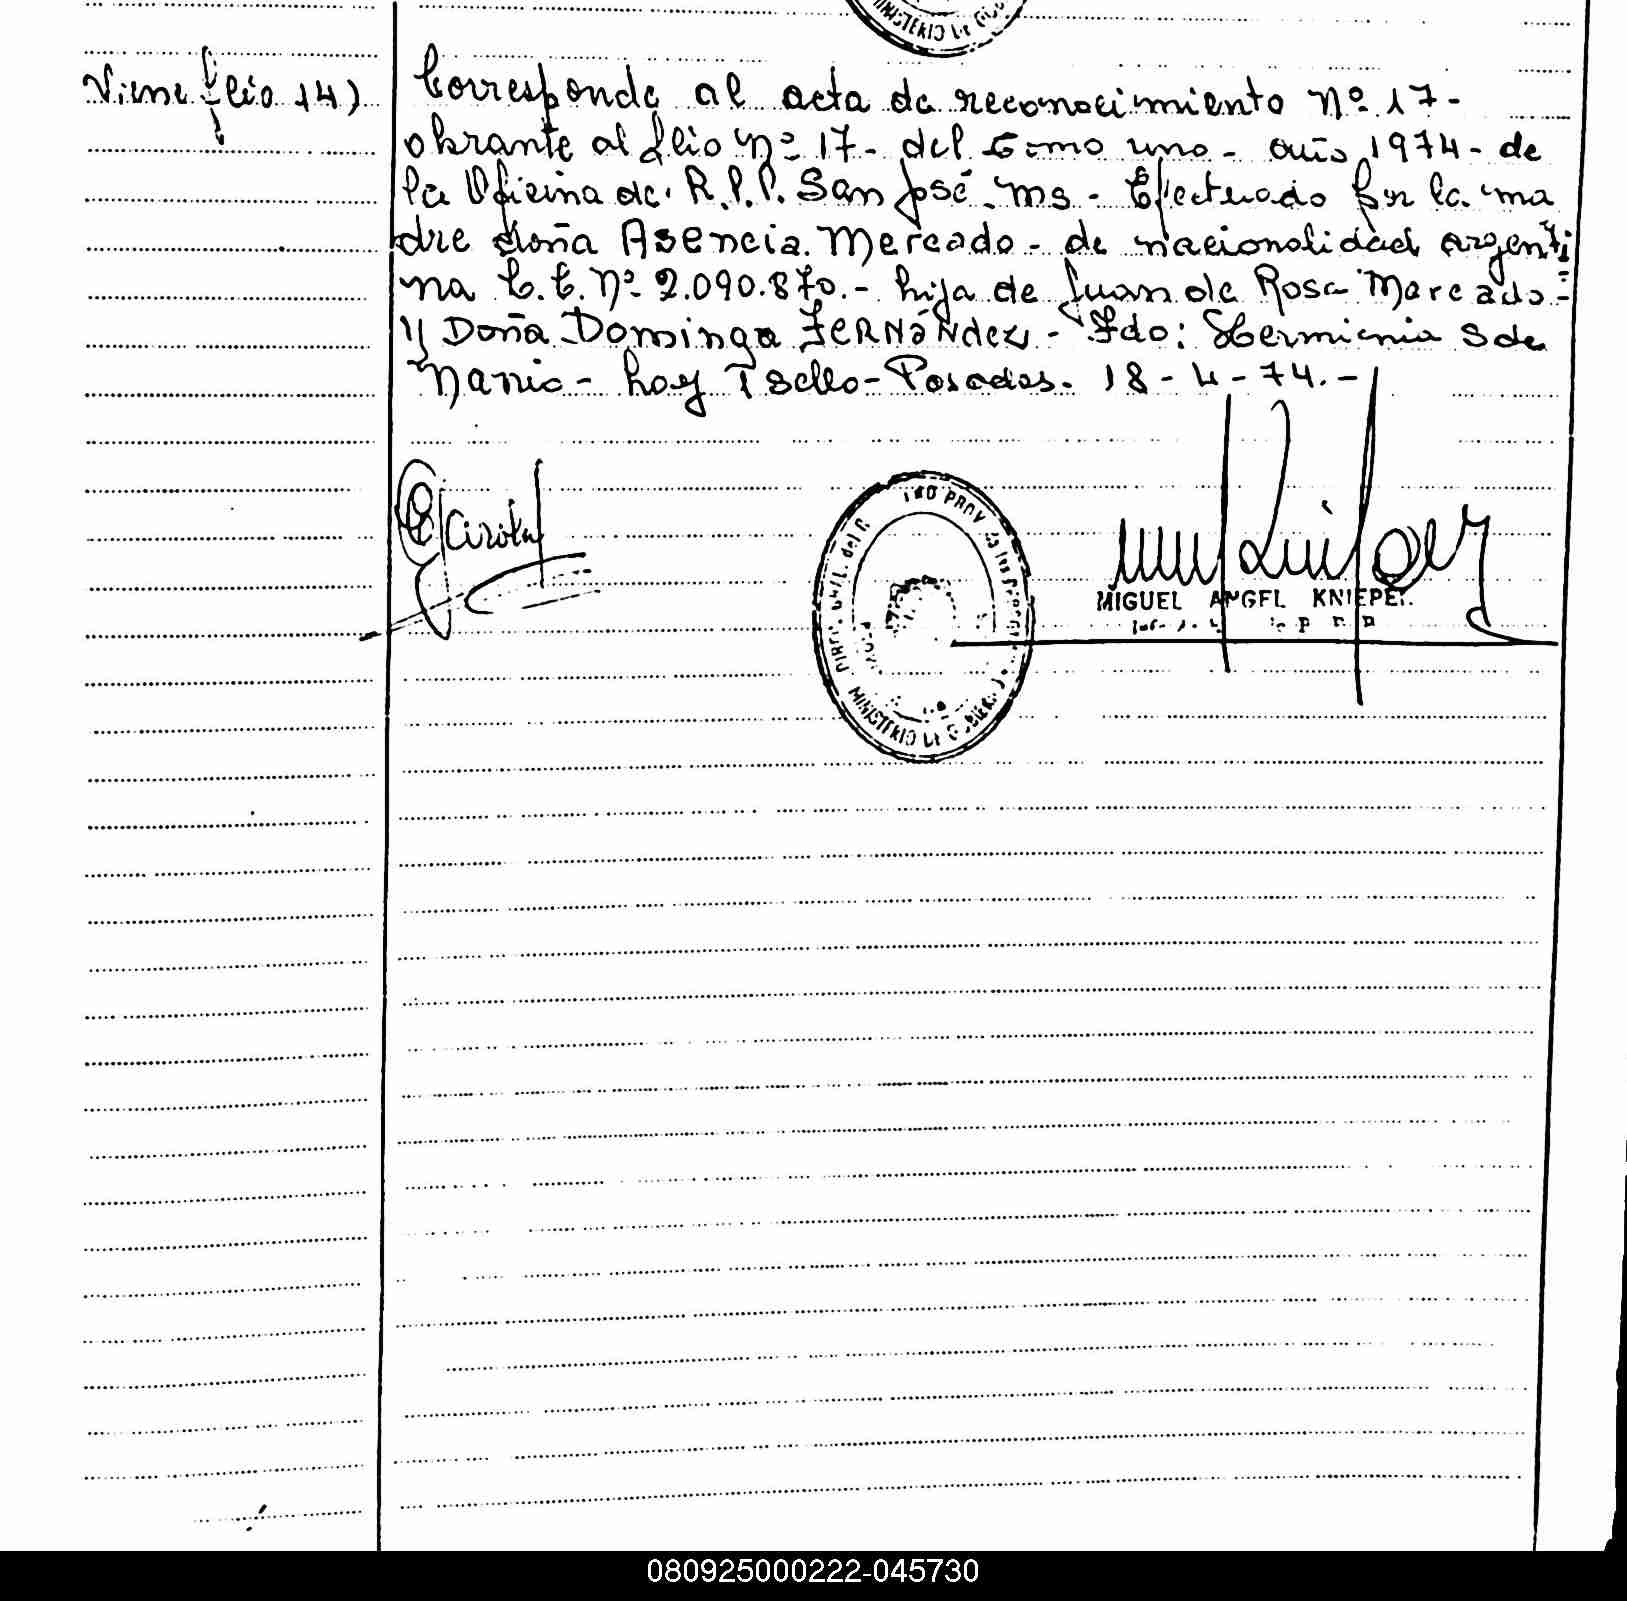 MINISTERIO DE GOB
Viene flio 14)
Corresponde al acta de reconocimiento Nº 17-
obrante al flio Nº 17- del tomo uno- año 1974- de
la Oficina de R.P.P. San José- Ms- Efectuado por la ma
dre doña Asencia Mercado- de nacionalidad argenti
na C.C. Nº 2.090.870.- hija de Juan de Rosa Mercado-
y Doña Dominga FERNÁNDEZ- Fdo: Herminia S de
hoy T sello- Posadas- 18-4-74.-
MIGUEL ANGEL KNIEPER
MINISTERIO DE GOBIERNO
080925000222-045730